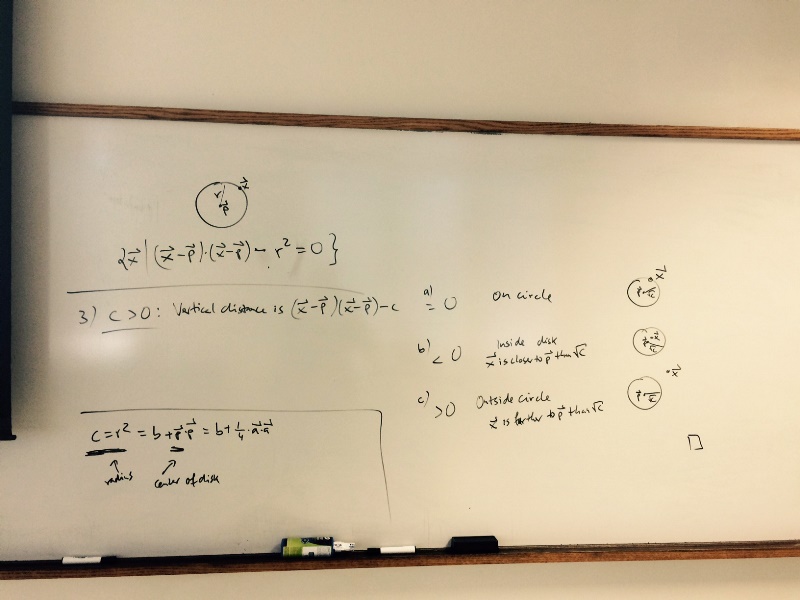 x⃗
r
p⃗
{x⃗ | (x⃗-p⃗)·(x⃗-p⃗) - r² = 0}
3) c > 0: Vertical distance is (x⃗-p⃗)(x⃗-p⃗)-c
a) = 0 On circle
x⃗
p⃗ √c
b) < 0 Inside disk
x⃗ is closer to p⃗ than √c
x⃗
p⃗ √c
c) > 0 Outside circle
x⃗ is farther to p⃗ than √c
x⃗
p⃗ √c
c = r² = b + p⃗·p⃗ = b + 1/4 · a⃗·a⃗
radius center of disk